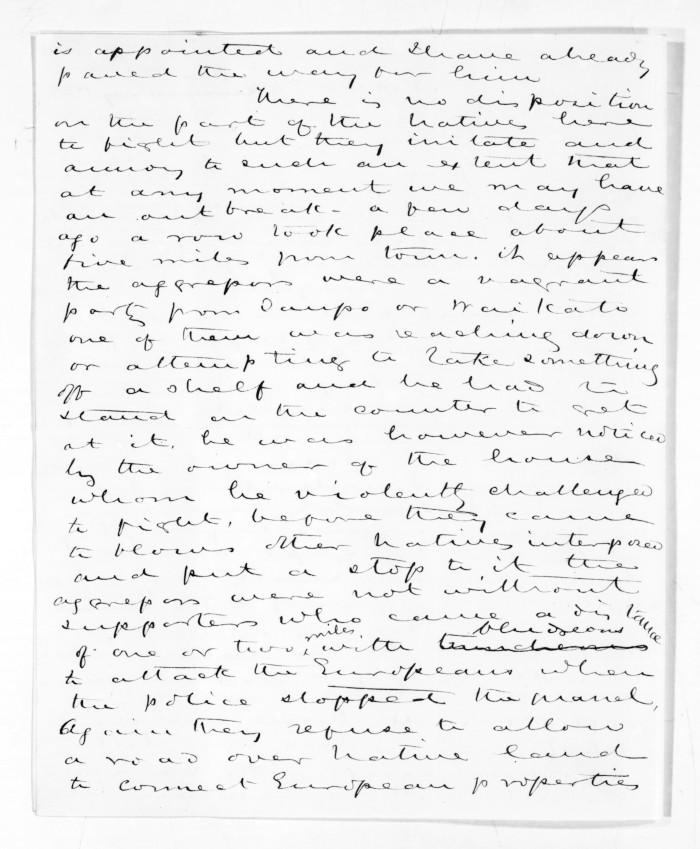 is appointed and I have already
paved the way for him
There is no disposition
on the part of the Natives here
to fight but they irritate and
annoy to such an extent that
at any moment we may have
an outbreak - a few days
ago a row took place about
five miles from town. it appears
the aggressors were a vagrant
party from Taupo or Waikato
one of them was reaching down
or attempting to take something
off a shelf and he had to
stand on the counter to get
at it. he was however noticed
by the owner of the house
whom he violently challenged
to fight, before they came
to blows other Natives interposed
and put a stop to it the
aggressors were not without
supporters who came a distance
of one or two miles, with truncheons bludgeons
to attack the Europeans when
the police stopped the
Again they refuse to allow
a road over Native land
to connect European properties